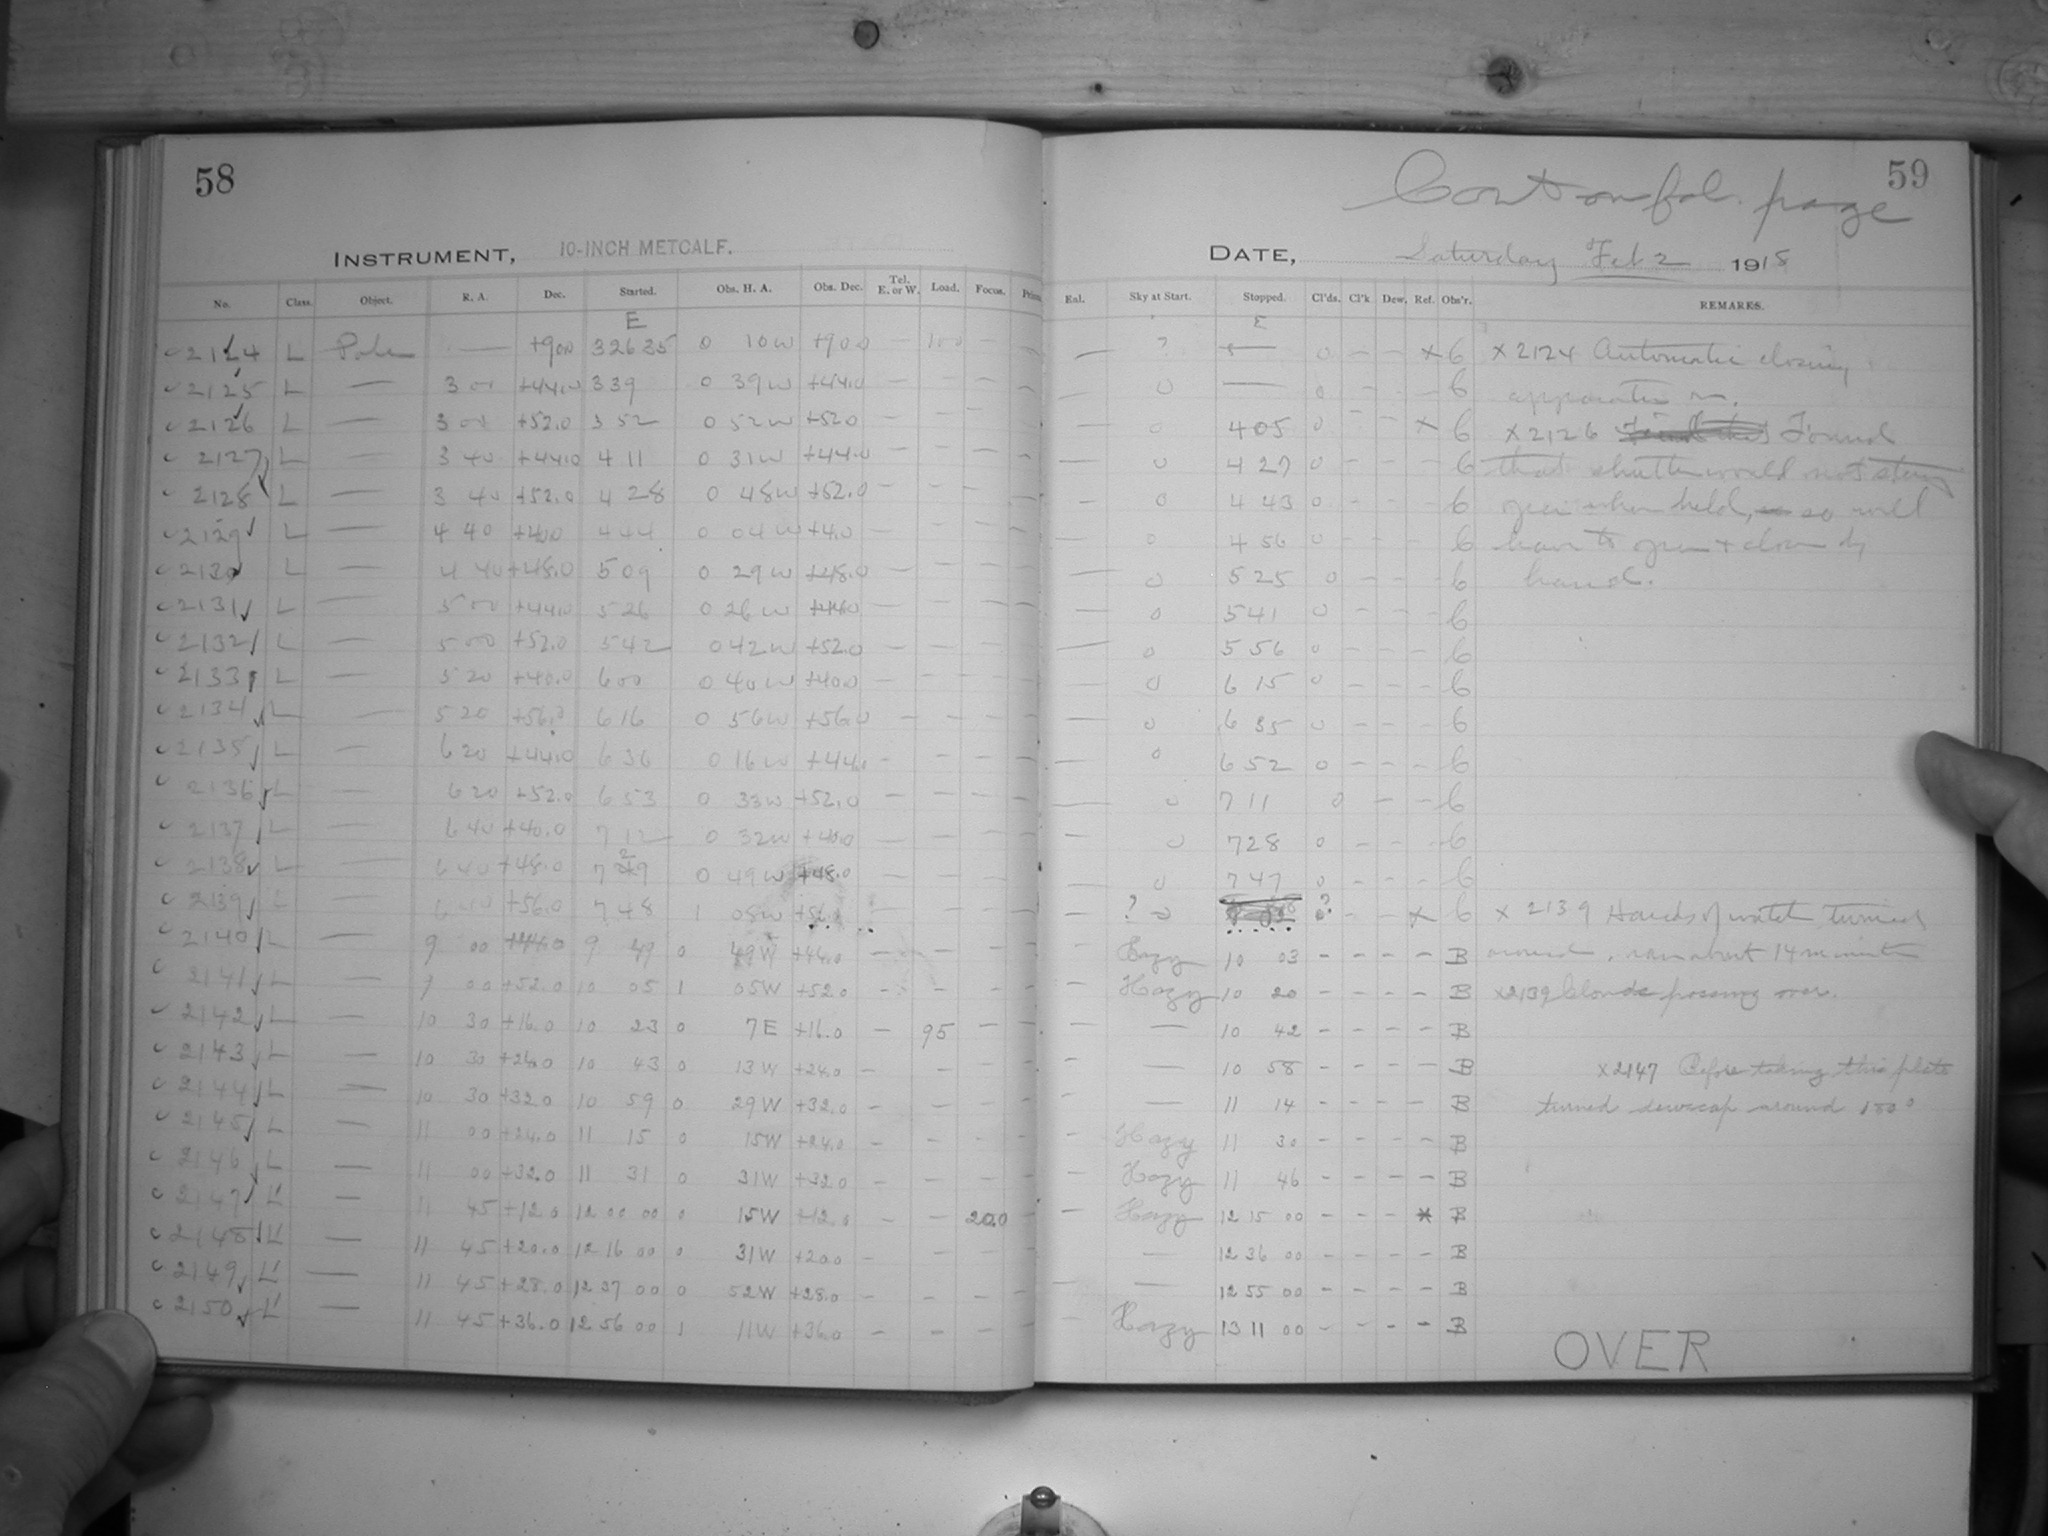 58
INSTRUMENT, 10-INCH METCALF.
No. Class. Object. R. A. Dec. Started. Obs. H. A. Obs. Dec. Tel. E. or W. Load. Focus.
E
2124 L Pole — +90.0 32635 0 10W +90.0 — 100 — —
2125 L — 3 00 +44.0 3 39 0 39W +44.0 — — — —
2126 L — 3 00 +52.0 3 52 0 52W +52.0 — — — —
2127 L — 3 40 +44.0 4 11 0 31W +44.0 — — — —
2128 L — 3 40 +52.0 4 28 0 48W +52.0 — — — —
2129 L — 4 40 +40.0 4 44 0 04W +4.0 — — — —
2130 L — 4 40 +48.0 5 09 0 29W +48.0 — — — —
2131 L — 5 00 +44.0 5 26 0 26W +44.0 — — — —
2132 L — 5 00 +52.0 5 42 0 42W +52.0 — — — —
2133 L — 5 20 +40.0 6 00 0 40W +40.0 — — — —
2134 L — 5 20 +56.0 6 16 0 56W +56.0 — — — —
2135 L — 6 20 +44.0 6 36 0 16W +44.0 — — — —
2136 L — 6 20 +52.0 6 53 0 33W +52.0 — — — —
2137 L — 6 40 +40.0 7 12 0 32W +40.0 — — — —
2138 L — 6 40 +48.0 7 29 0 49W +48.0 — — — —
2139 L — 6 40 +56.0 7 48 1 08W +56.0 — — — —
2140 L — 9 00 +44.0 9 49 0 49W +44.0 — — — —
2141 L — 9 00 +52.0 10 05 1 05W +52.0 — — — —
2142 L — 10 30 +16.0 10 23 0 7E +16.0 — 95 — —
2143 L — 10 30 +24.0 10 43 0 13W +24.0 — — — —
2144 L — 10 30 +32.0 10 59 0 29W +32.0 — — — —
2145 L — 11 00 +24.0 11 15 0 15W +24.0 — — — —
2146 L — 11 00 +32.0 11 31 0 31W +32.0 — — — —
2147 L' — 11 45 +12.0 12 00 00 0 15W +12.0 — — 20.0 —
2148 L' — 11 45 +20.0 12 16 00 0 31W +20.0 — — — —
2149 L' — 11 45 +28.0 12 37 00 0 52W +28.0 — — — —
2150 L' — 11 45 +36.0 12 56 00 1 11W +36.0 — — — —
59
Cont on fol. page
DATE, Saturday Feb 2 1918
Exl. Sky at Start. Stopped. Cl'ds. Cl'k Dew. Ref. Obs'r. REMARKS.
E
— ? — 0 — — x 6 x 2124 Automatic closing
— 0 — 0 — — — 6 apparatus on.
— 0 4 05 0 — — x 6 x 2126 Found
— 0 4 27 0 — — — 6 that shutter would not stay
— 0 4 43 0 — — — 6 open when held, so will
— 0 4 56 0 — — — 6 have to open + close by
— 0 5 25 0 — — — 6 hand.
— 0 5 41 0 — — — 6
— 0 5 56 0 — — — 6
— 0 6 15 0 — — — 6
— 0 6 35 0 — — — 6
— 0 6 52 0 — — — 6
— 0 7 11 0 — — — 6
— 0 7 28 0 — — — 6
— 0 7 47 0 — — — 6
— ? 0 ? — — x 6 x 2139 Hands of watch turned
— Hazy 10 03 — — — — B around, ran about 14 minutes
— Hazy 10 20 — — — — B x2139 Clouds passing over.
— — 10 42 — — — — B
— — 10 58 — — — — B x2147 Before taking this plate
— — 11 14 — — — — B turned dewcap around 180°
— Hazy 11 30 — — — — B
— Hazy 11 46 — — — — B
— Hazy 12 15 00 — — — * B
— — 12 36 00 — — — — B
— — 12 55 00 — — — — B
— Hazy 13 11 00 — — — — B
OVER